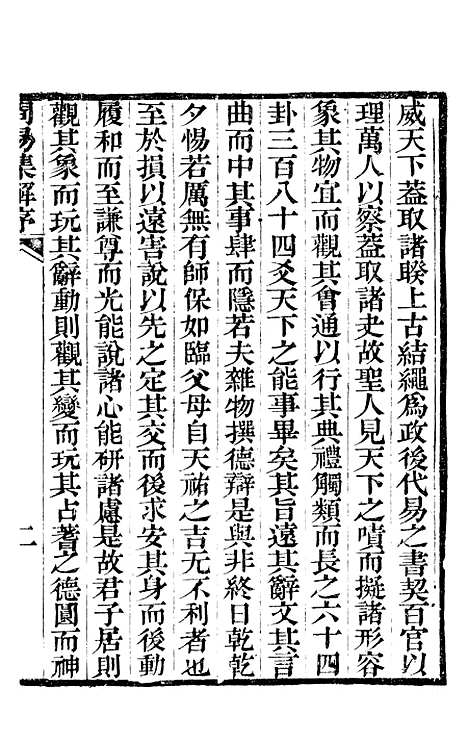 威天下蓋取諸睽上古結繩爲政後代易之書契百官以
理萬人以察蓋取諸夬故聖人見天下之嘖而擬諸形容
象其物宜而觀其會通以行其典禮觸類而長之六十四
卦三百八十四爻天下之能事畢矣其旨遠其辭文其言
曲而中其事肆而隱若夫雜物撰德辯是與非終日乾乾
夕惕若厲無有師保如臨父母自天祐之吉无不利者也
至於損以遠害說以先之定其交而後求安其身而後動
履和而至謙尊而光能說諸心能研諸慮是故君子居則
觀其象而玩其辭動則觀其變而玩其占蓍之德圓而神
周易集解序
二